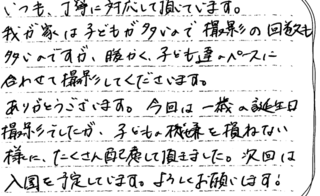 いつも、丁寧に対応して頂いています。
我が家は子どもが多いので撮影の回数も
多いのですが、暖かく、子ども達のペースに
合わせて撮影してくださいます。
ありがとうございます。今回は一歳の誕生日
撮影でしたが、子どもの機嫌を損ねない
様に、たくさん配慮して頂きました。次回は
入園を予定しています。よろしくお願いします!